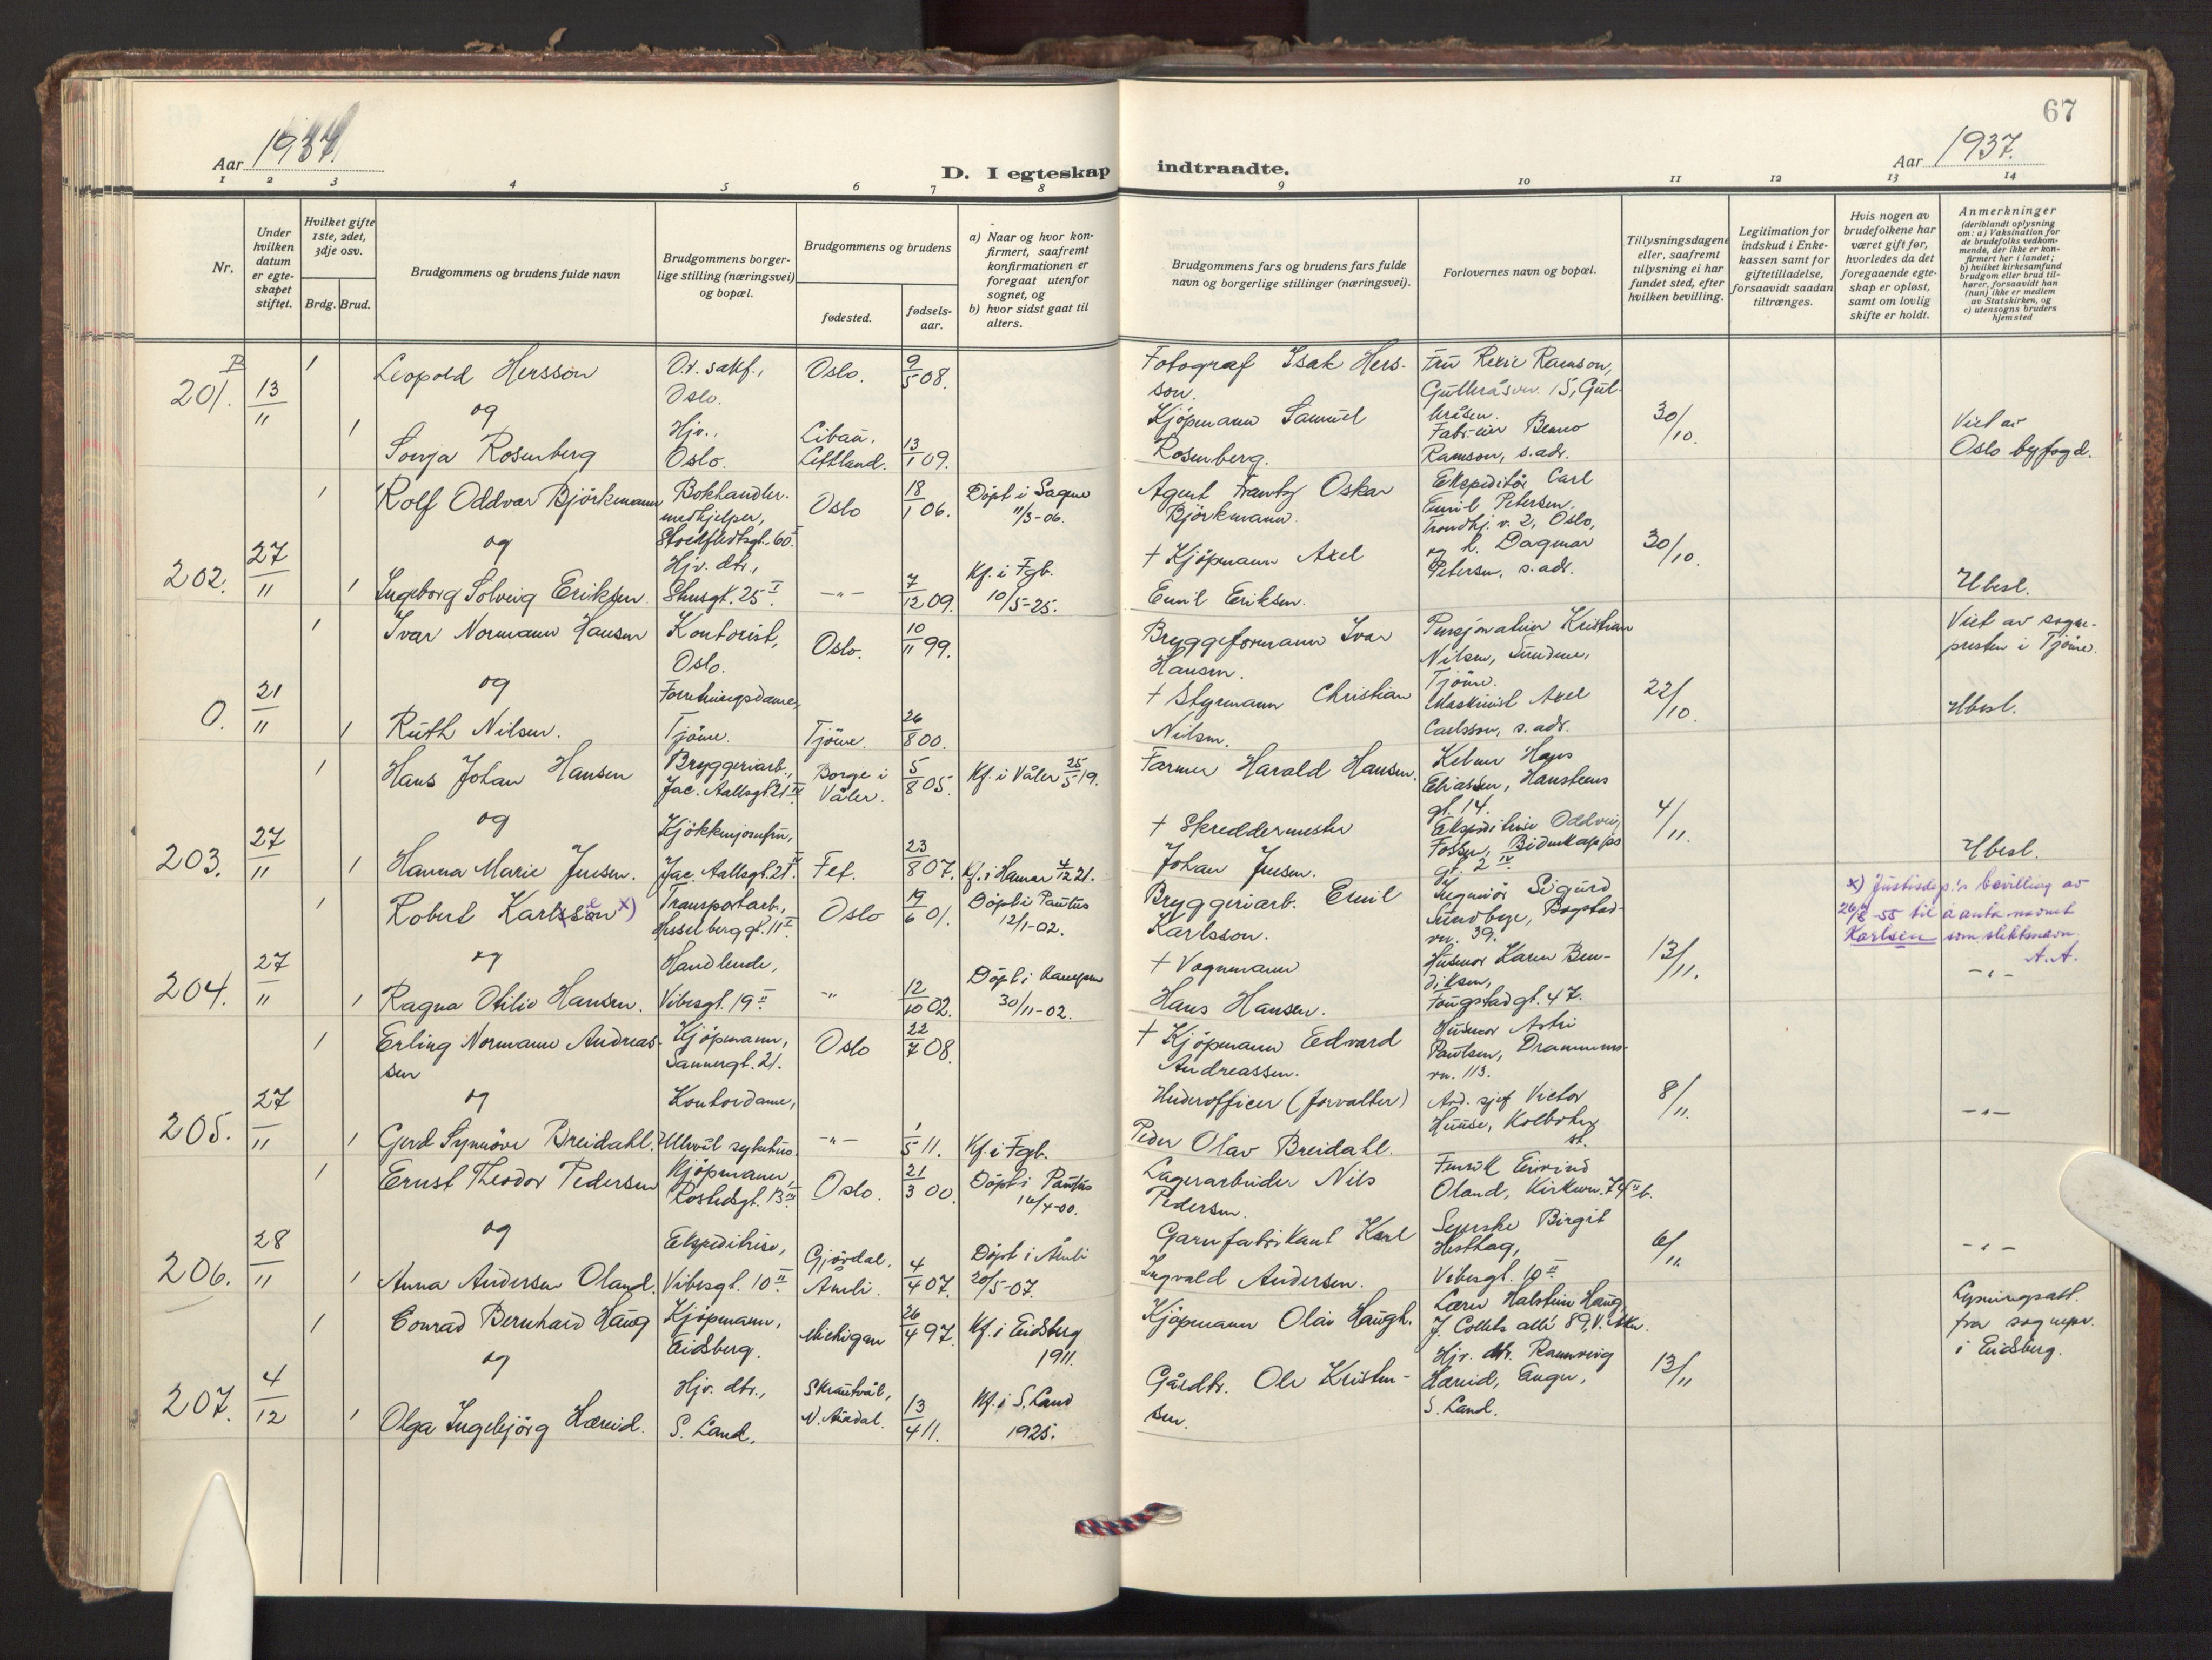 67
Aar 1937.
Aar 1937.
D. I egteskap indtraadte.
1 2 3 4 5 6 7 8 9 10 11 12 13 14
Nr.
Under hvilken datum er egteskapet stiftet.
Hvilket gifte 1ste, 2det, 3dje osv.
Brdg. Brud.
Brudgommens og brudens fulde navn
Brudgommens borgerlige stilling (næringsvei) og bopæl.
Brudgommens og brudens
fødested.
fødselsaar.
a) Naar og hvor konfirmert, saafremt konfirmationen er foregaat utenfor sognet, og
b) hvor sidst gaat til alters.
Brudgommens fars og brudens fars fulde navn og borgerlige stillinger (næringsvei).
Forlovernes navn og bopæl.
Tillysningsdagene eller, saafremt tillysning ei har fundet sted, efter hvilken bevilling.
Legitimation for indskud i Enkekassen samt for giftetilladelse, forsaavidt saadan tiltrænges.
Hvis nogen av brudefolkene har været gift før, hvorledes da det foregaaende egteskap er opløst, samt om lovlig skifte er holdt.
Anmerkninger
(deriblandt oplysning om: a) Vaksination for de brudefolks vedkommende, der ikke er konfirmert her i landet;
b) hvilket kirkesamfund brudgom eller brud tilhører, forsaavidt han (hun) ikke er medlem av Statskirken, og
c) utensogns bruders hjemsted
201. 13/11 1 Leopold Hersson O.r. sakf., Oslo. Oslo. 9/5 08. Fotograf Isak Hersson. Fru Rexie Ramson, Gullkråsvn. 15, Gulkråsen. 30/10.
og
1 Sonja Rosenberg Hjv., Oslo. Libau, Lettland. 13/1 09. Kjöpmann Samuel Rosenberg. Fabr.eier Benno Ramson, s. adr. Viet av Oslo byfogd.
202. 27/11 1 Rolf Oddvar Björkmann Bokhandler-medhjelper, Stockfledtsgt. 60 I Oslo 18/1 06. Döpt i Sagene 11/3-06. Agent Frantz Oskar Björkmann. Ekspeditör Carl Emil Petersen, Trondhj.v. 2, Oslo, 30/10.
og
1 Ingeborg Solveig Eriksen. Hjv. dtr., Shusgt. 25 I. -"- 7/12 09. Kf. i Fgb. 10/5-25. + Kjöpmann Axel Emil Eriksen. og h. Dagmar Petersen, s. adr. Ubesl.
0. 21/11 1 Ivar Normann Hansen Kontorist, Oslo. Oslo. 10/11 99. Bryggeformann Ivar Hansen. Pensjonateier Kristian Nilsen, Tjöme. 22/10. Viet av sognepresten i Tjöme.
og
1 Ruth Nilsen. Forretningsdame, Tjöme. Tjöme. 26/8 00. + Styrmann Christian Nilsen. Maskinist Axel Carlsson, s. adr. Ubesl.
203. 27/11 1 Hans Johan Hansen Bryggeriarb., Jac. Aallsgt. 21 IV Borge i Våler. 5/8 05. Kf. i Våler 25/5 19. Farmer Harald Hansen. Kelner Hans Eliassen, Hansteens gt. 14. 4/11.
og
1 Hanna Marie Jensen. Kjökkenjomfru, Jac. Aallsgt. 21 IV. Fet. 23/8 07. Kf. i Hamar 4/12 21. + Skreddermester Johan Jensen. Ekspeditrise Oddveig Fossen, Bidenkapps gt. 2 IV Ubesl.
204. 27/11 1 Robert Karlsson x) Transportarb., Hesselberggt. 11 II Oslo 19/6 01. Döpt i Paulus 12/1-02. Bryggeriarb. Emil Karlsson. Ingeniör Sigurd Sundbye, Bogstadvn. 39. 13/11.
x) Justisdep.'s bevilling av 26/8-55 til å anta navnet Karlsen som slektsnavn. A.A.
og
1 Ragna Otilie Hansen. Handlende, Vibesgt. 19 II -"- 12/10 02. Döpt i Kampen 30/11-02. + Vognmann Hans Hansen. Husmor Karen Bendiksen, Fougstadgt. 47. -"-
205. 27/11 1 Erling Normann Andreassen Kjöpmann, Sannergt. 21. Oslo 22/7 08. + Kjöpmann Edvard Andreassen. Husmor Astri Paulsen, Drammensvn. 113. 8/11.
og
1 Gerd Synnöve Breidahl. Kontordame, Ullevål sykehus. -"- 1/5 11. Kf. i Fgb. Underofficer (forvalter) Peder Olav Breidahl. Avd. sjef Victor Huuse, Kolbotn st. -"-
206. 28/11 1 Ernst Theodor Pedersen Kjöpmann, Rostedsgt. 13 III. Oslo. 21/3 00. Döpt i Paulus 16/4-00. Lagerarbeider Nils Pedersen. Fenrik Eivind Oland, Kirkevn. 74 II b. 6/11.
og
1 Anna Andersen Oland. Ekspeditrise, Vibesgt. 10 II Gjövdal, Åmli. 4/4 07. Döpt i Åmli 20/5-07. Garnfabrikant Karl Ingvald Andersen. Syerske Birgit Hesthag, Vibesgt. 10 II -"-
207. 4/12 1 Conrad Bernhard Haug Kjöpmann, Eidsberg. Michigan 26/4 97. Kf. i Eidsberg 1911. Kjöpmann Olai Haugh. Lærer Halstein Haug, J. Colletts allé 89, V. Aker. 13/11 Lysningsatt. fra sognepr. i Eidsberg.
og
1 Olga Ingebjörg Hæreid. Hjv. dtr., S. Land. Skrautvål, N. Aurdal. 13/4 11. Kf. i S. Land 1925. Gårdbr. Ole Kristensen. Hjv. dtr. Rannveig Hæreid, Enger, S. Land.